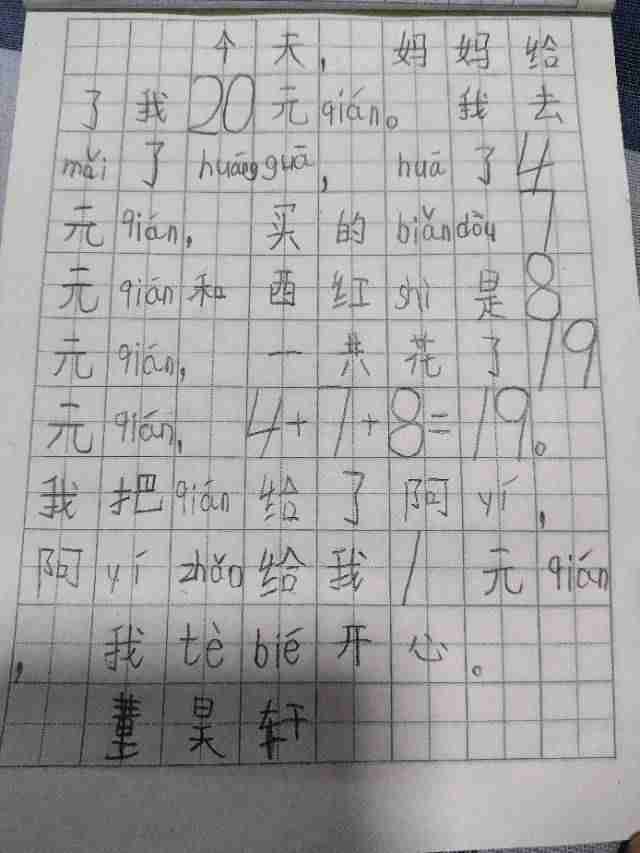 个天，妈妈给
了我20元qián。我去
mǎi了huánɡɡuā，huā了4
元qián，买的biǎndòu7
元qián和西红shì是8
元qián，一共花了19
元qián，4+7+8=19。
我把qián给了阿yí，
阿yí zhǎo给我1元qián
，我tè bié开心。
董昊轩